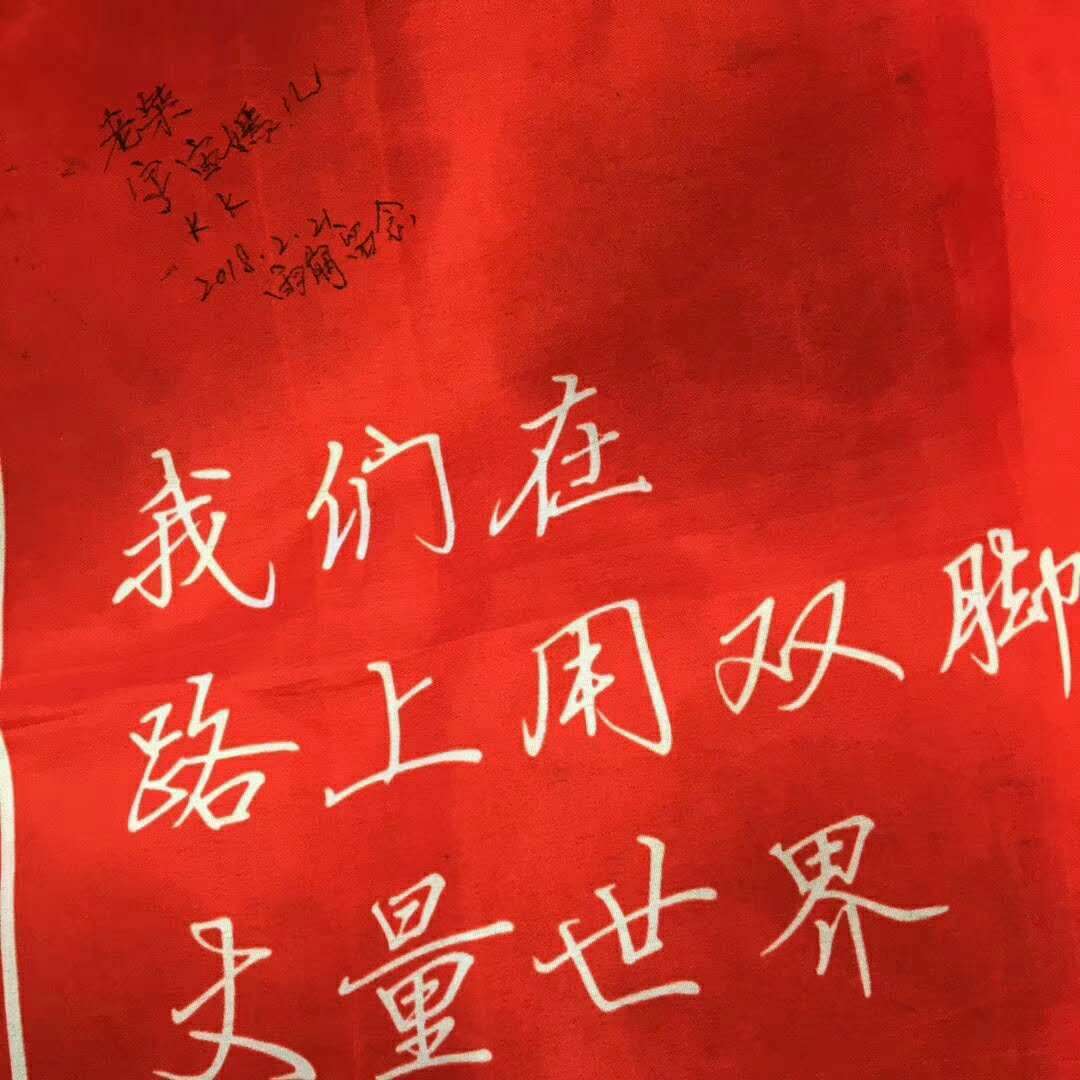 老柴
宇宙嫣儿
KK
2018.2.21
雨崩留念
我们在
路上用双脚
丈量世界